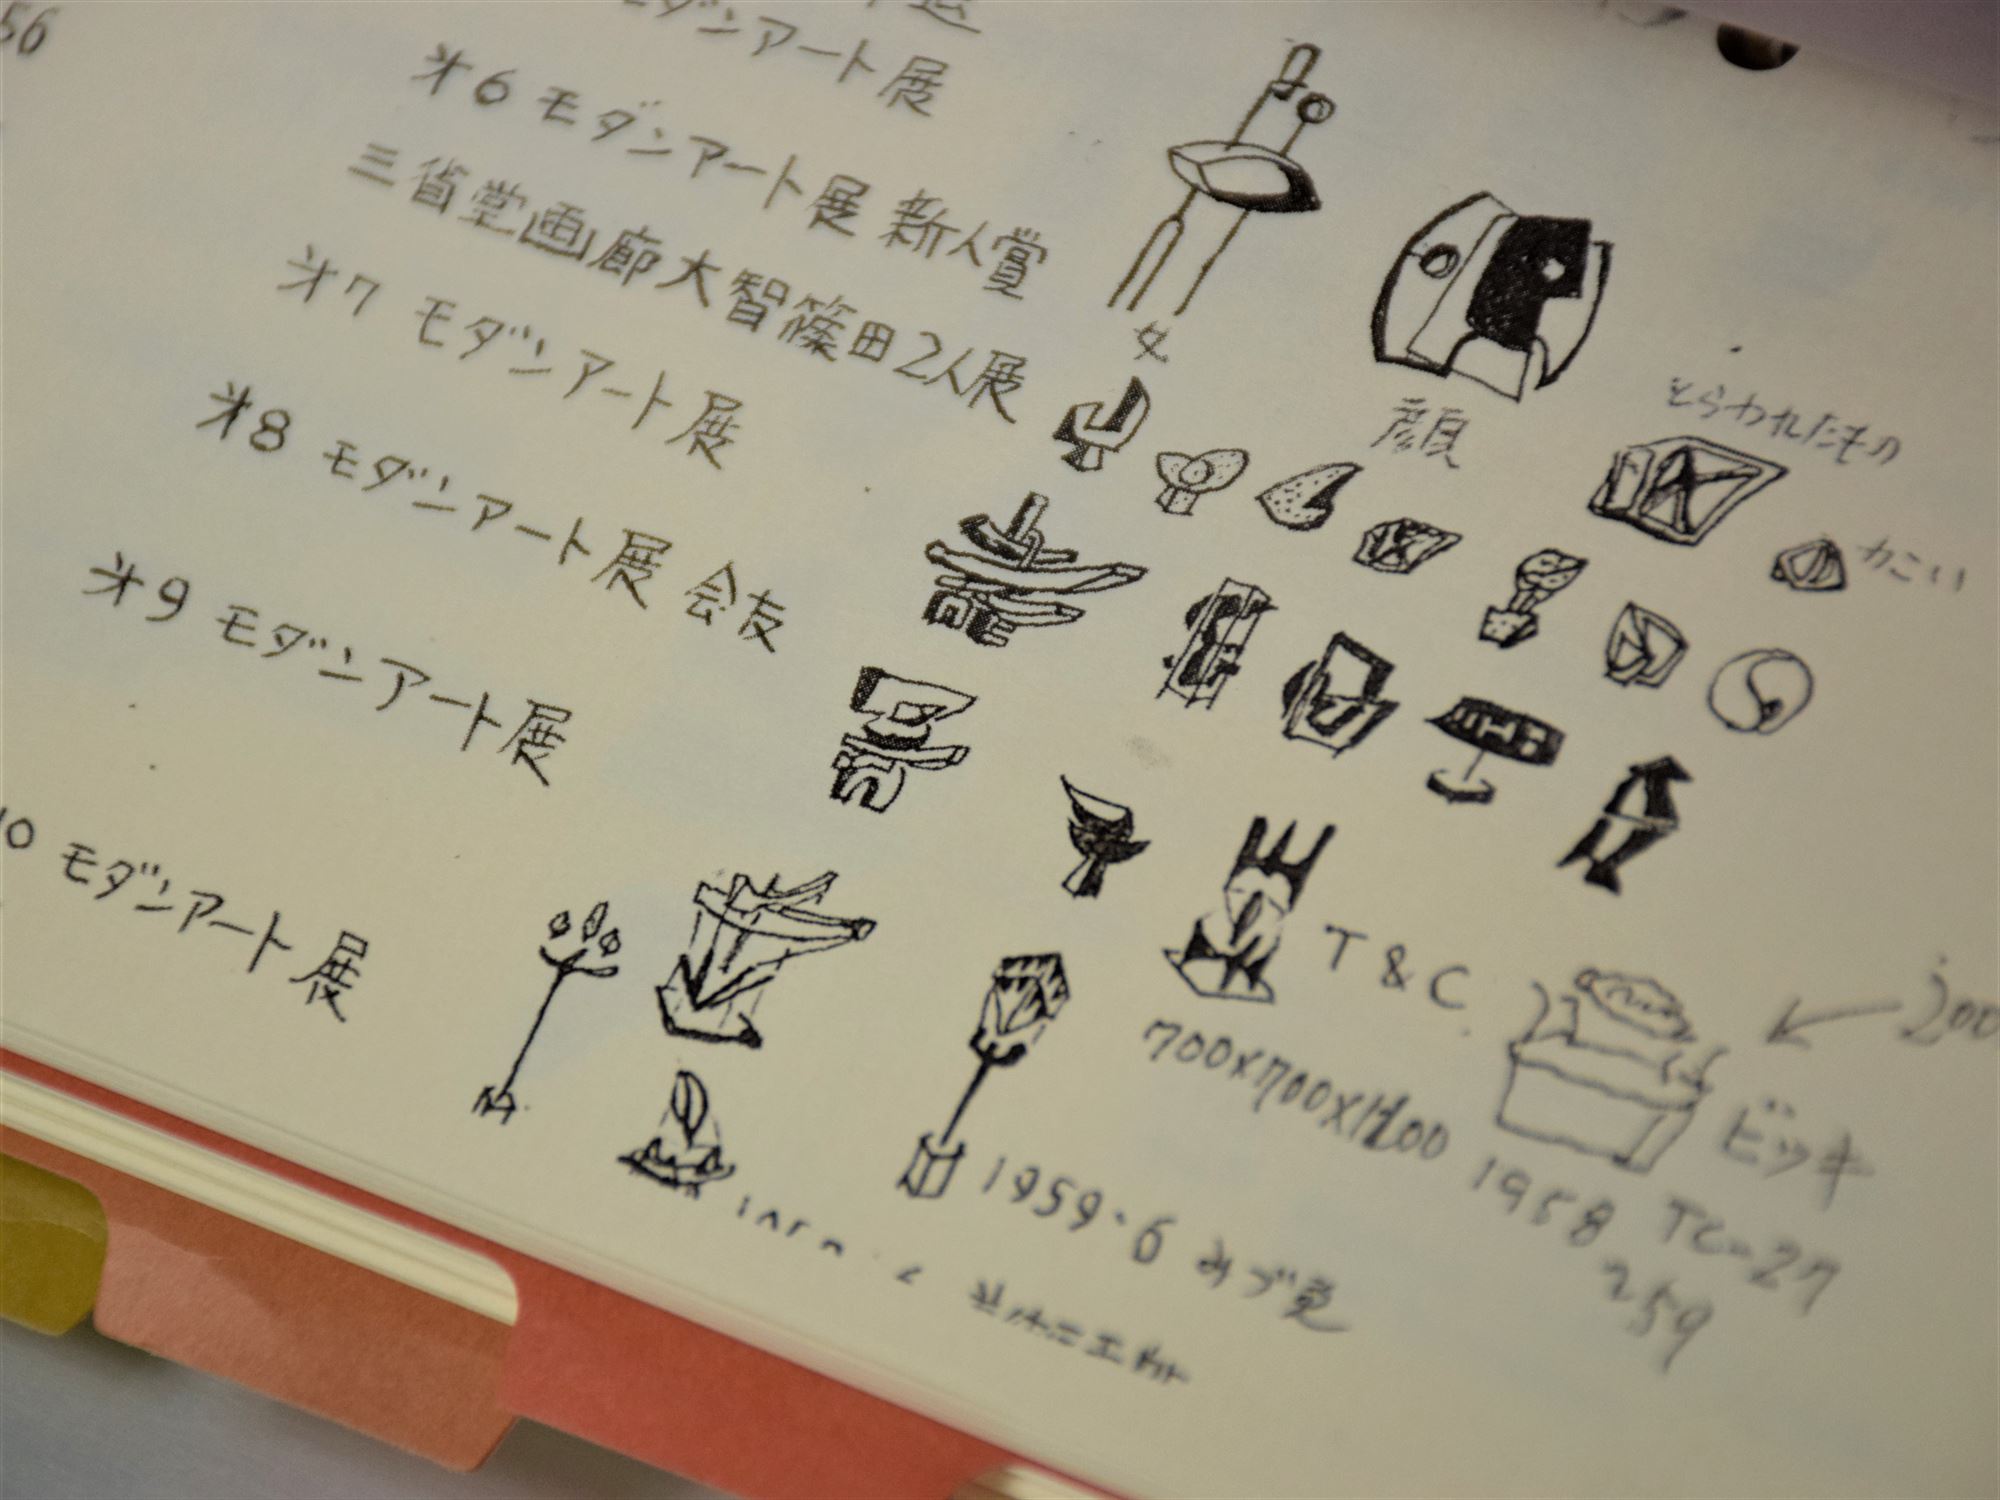 56
モダンアート展
才6 モダンアート展 新人賞
三省堂画廊大智篠田2人展
才7 モダンアート展
才8 モダンアート展 会友
才9 モダンアート展
10 モダンアート展
女
顔
とらわれたもの
かこい
T&C
700×700×1200
ビッキ
200
1958 TC-27
259
1959.6 みづゑ